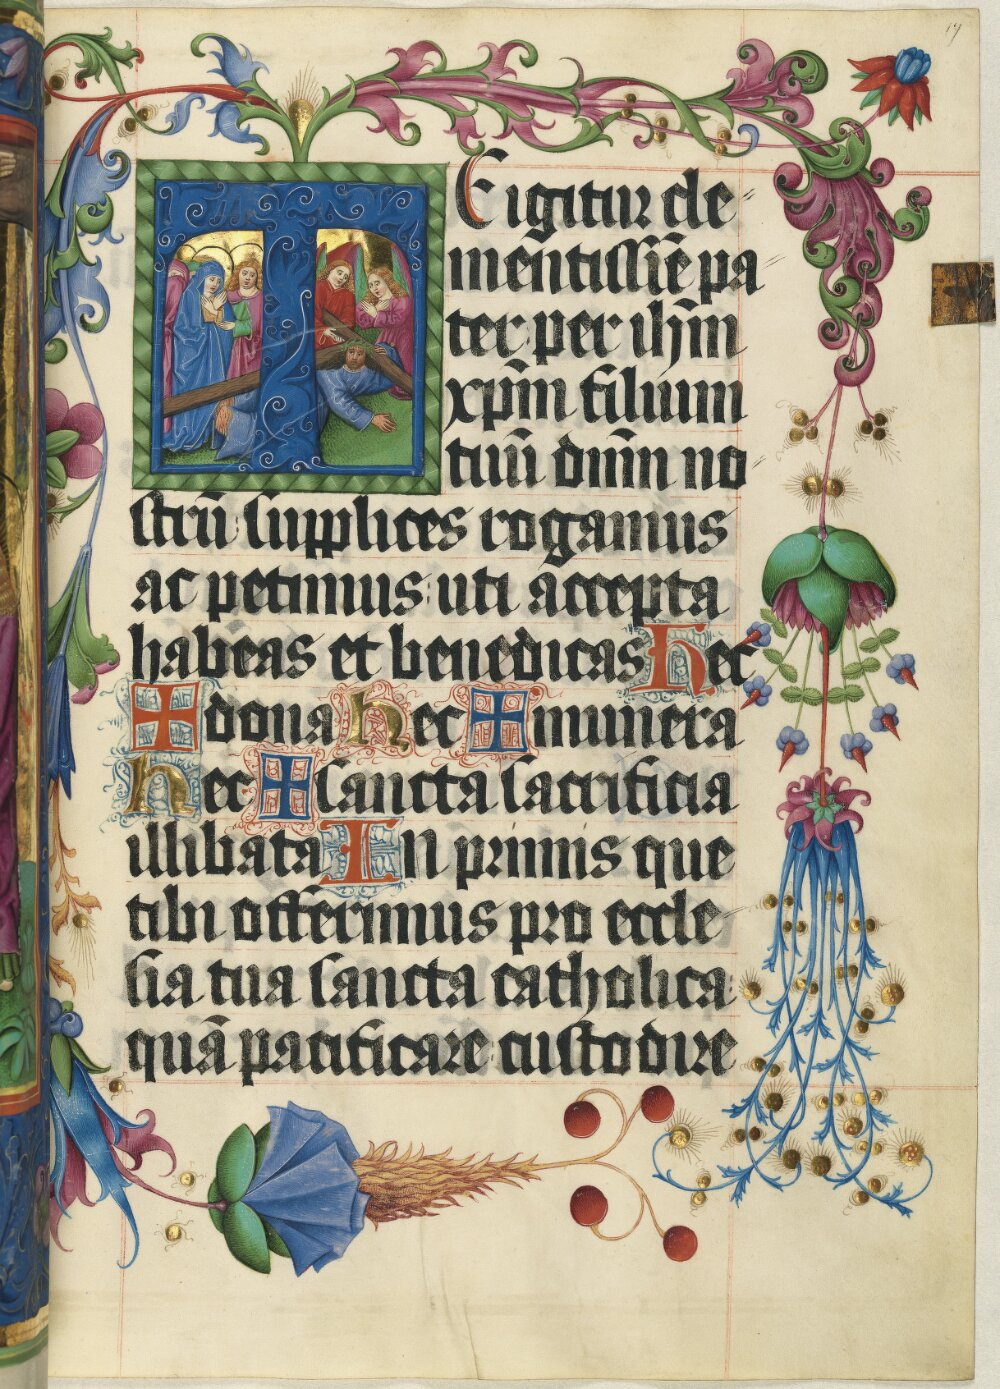 TE igitur cle-
mentissiē pa-
ter: per ihm̄
xpm̄ filium
tuū dnm̄ no-
strū: supplices rogamus
ac petimus: uti accepta
habeas et benedicas Hec
✠ dona Hec ✠ munera
Hec ✠ sancta sacrificia
illibata IN primis que
tibi offerimus pro eccle-
sia tua sancta catholica:
quā pacificare: custodire